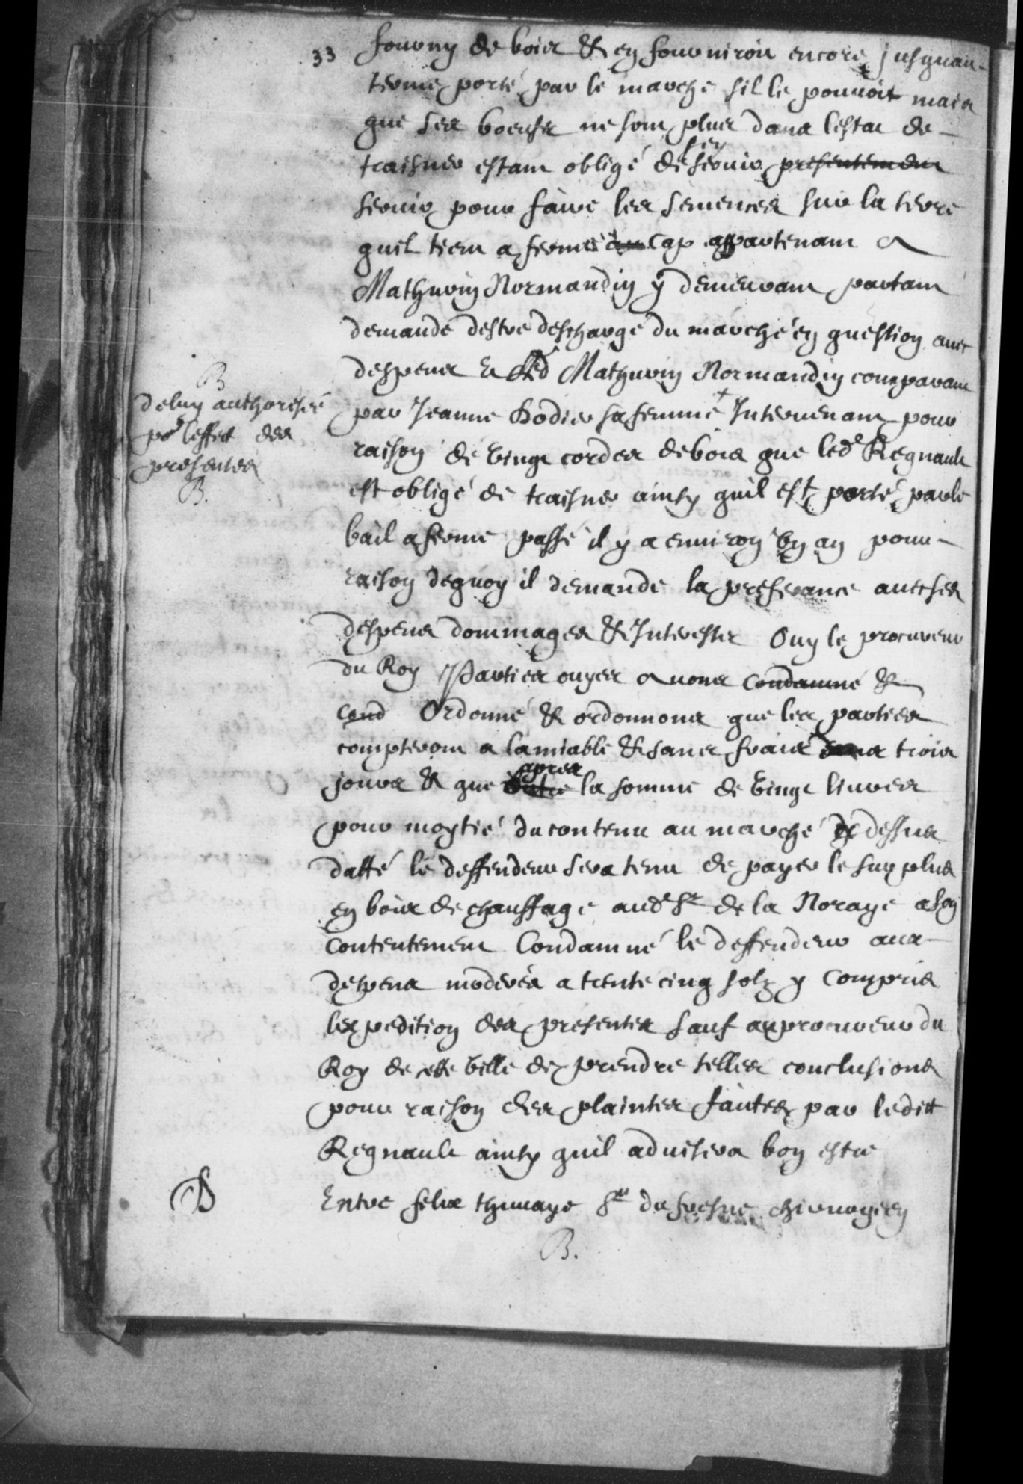 33 fourny de bois & en fourniroit encore jusquau
terme porté par le marché sil le pouvoit mais
que ses boeufs ne sont plus dans lestat de
traisner estant obligé de sen servir presentement
servir pour faire les semences sur la terre
quil tient a ferme au Cap appartenant a
Mathurin Normandin y demeurant partant
demande destre deschargé du marché en question avec
despens Et led Mathurin Normandin comparant
B
par Jeanne Hodier sa femme + Intervenant pour
de luy authorisée
po.r leffet des
presentes
B.
raison de vingt cordes de bois que led.t Regnault
est obligé de traisner ainsy quil est porté par le
bail a ferme passé il y a environ un an pour
raison dequoy il demande la preferance avec ses
despens dommages & Interestz Ouy le procureur
du Roy Parties ouyes Avons condamné &
cond Ordonné & ordonnons que les parties
compteront a lamiable & sans frais dans trois
jours & que apres la somme de vingt livres
pour moytié du contenu au marché cy dessus
datté le deffendeur sera tenu de payer le surplus
en bois de chauffage aud.t S.r de la Noraye a son
contentement Condamné le deffendeur aux
despens moderés a trente cinq solz y compris
lexpedition des presentes sauf au procureur du
Roy de cette ville de prendre telles conclusions
pour raison des plaintes faites par ledit
Regnault ainsy quil advisera bon estre
Entre felix thunaye S.r du fresne chirurgien
B.